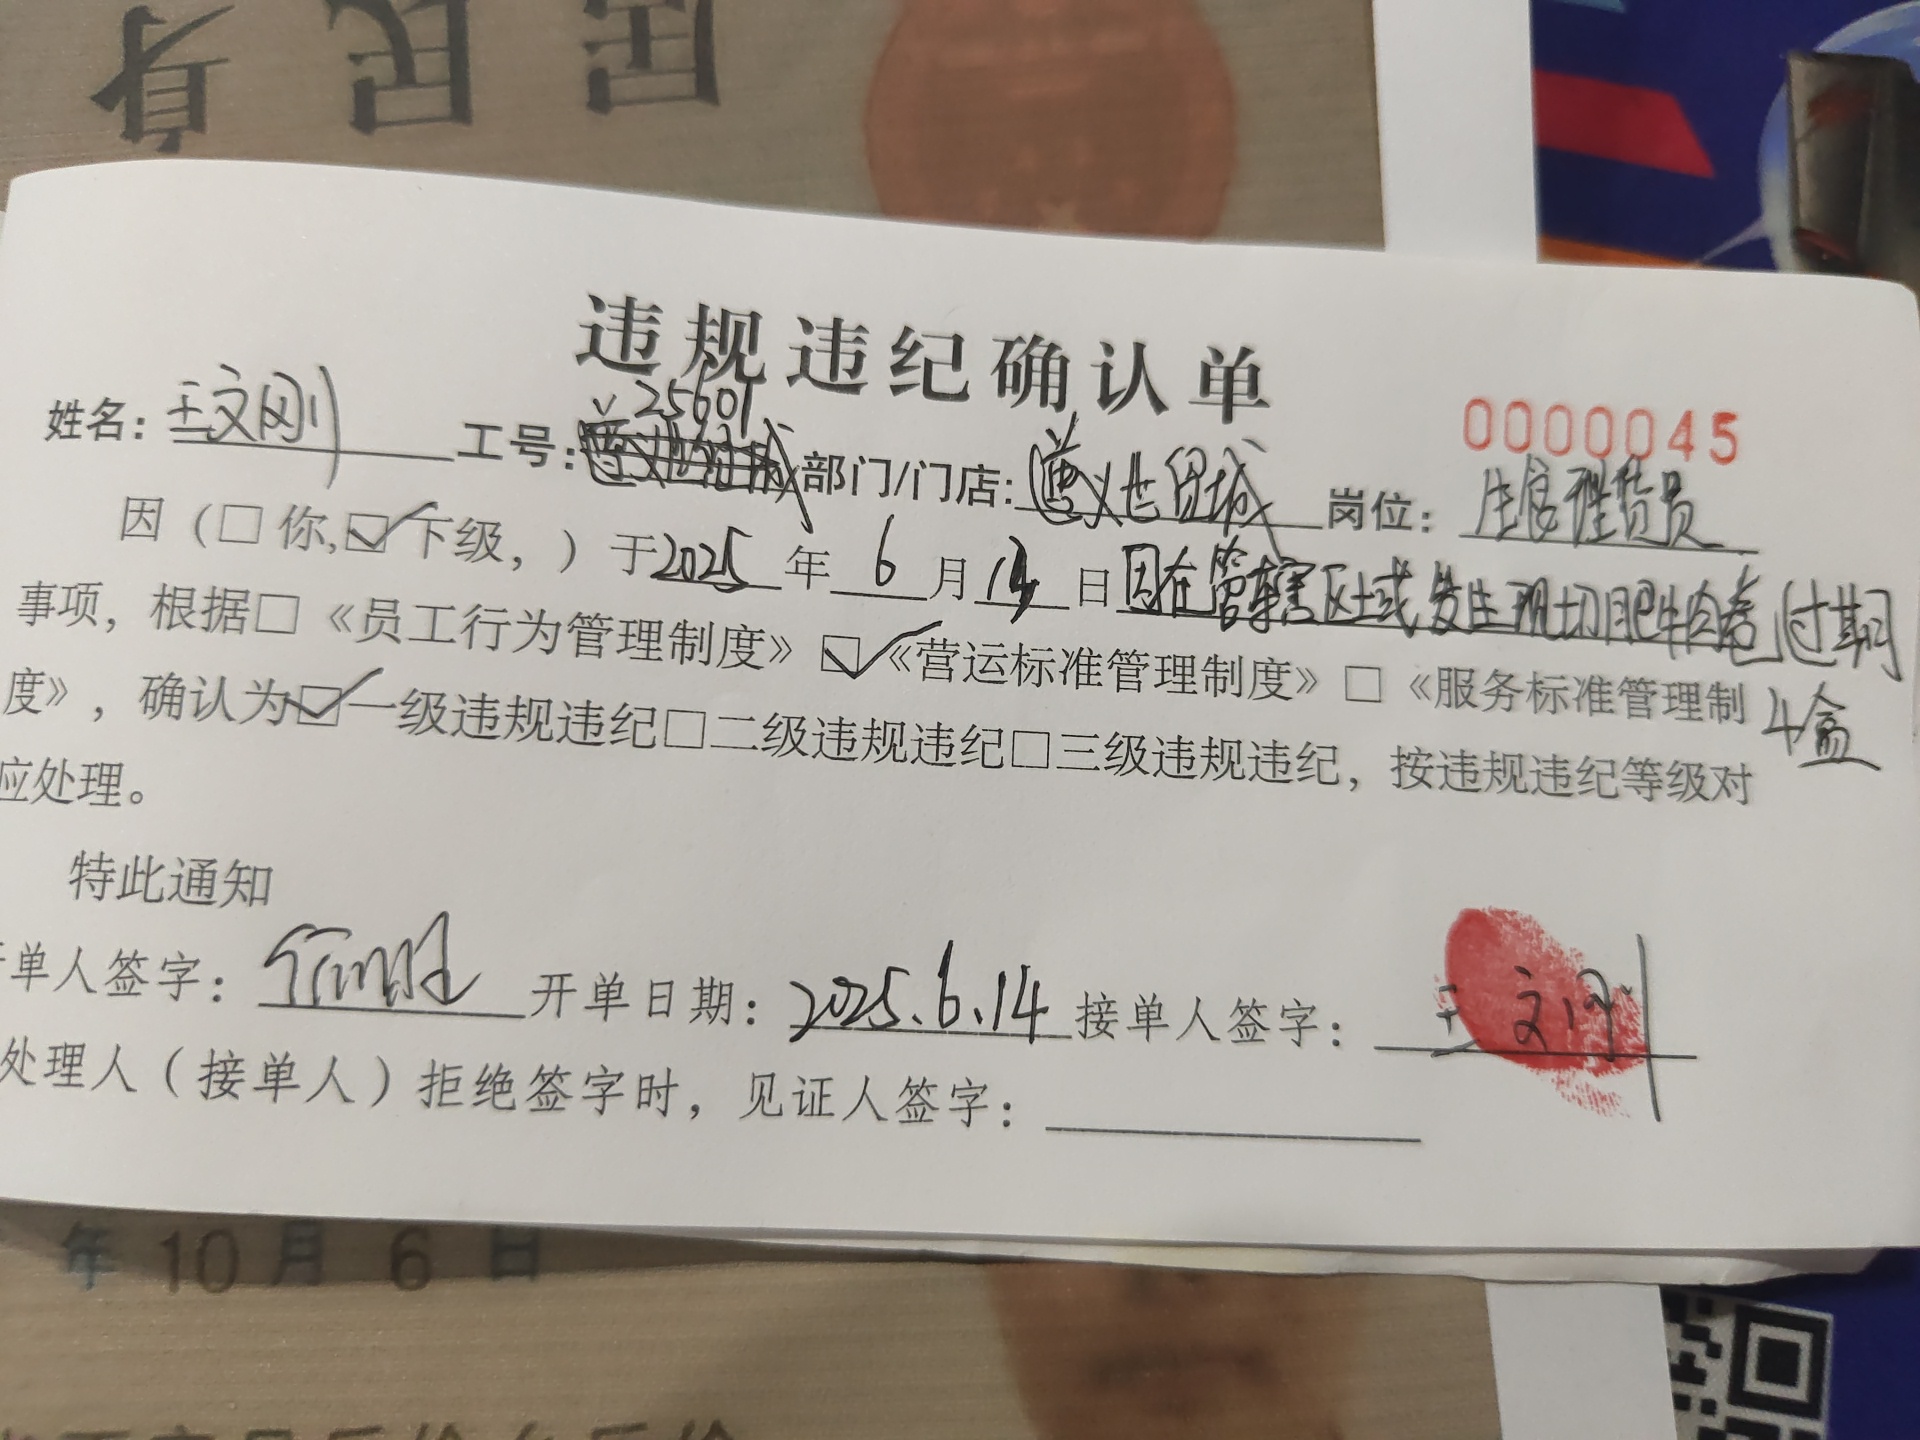 居民身
违规违纪确认单
0000045
姓名：王文刚 工号：25601 部门/门店：遵义世贸城 岗位：生家理货员
因（□你,☑下级，）于2025年6月13日因在管辖区域发生现切肥牛肉卷过期
事项，根据□《员工行为管理制度》☑《营运标准管理制度》□《服务标准管理制 4盒
度》，确认为☑一级违规违纪□二级违规违纪□三级违规违纪，按违规违纪等级对
应处理。
特此通知
单人签字： 开单日期：2025.6.14 接单人签字：王文刚
处理人（接单人）拒绝签字时，见证人签字：
年10月6日